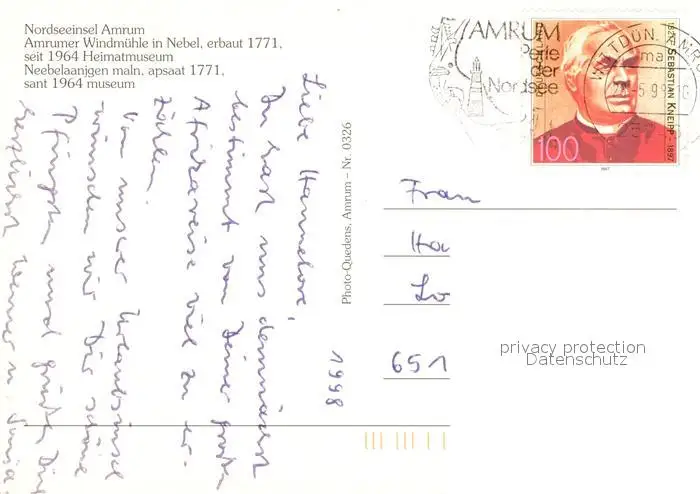 Nordseeinsel Amrum
Amrumer Windmühle in Nebel, erbaut 1771,
seit 1964 Heimatmuseum
Neebelaanjgen maln, apsaat 1771,
sant 1964 museum
AMRUM
Perle
der
Nordsee
WITTDÜN, AMRUM
100
SEBASTIAN KNEIPP
1897
1997
Photo-Quedens, Amrum – Nr. 0326
1998
Liebe Hannelore,
Du hast uns demnächst
bestimmt von Deiner großen
Afrikareise viel zu er-
zählen.
Von unserer Urlaubsinsel
wünschen wir Dir schöne
Pfingsten und grüßen Dich
herzlichst Werner u.
Frau
Ha
Lo
651
privacy protection
Datenschutz